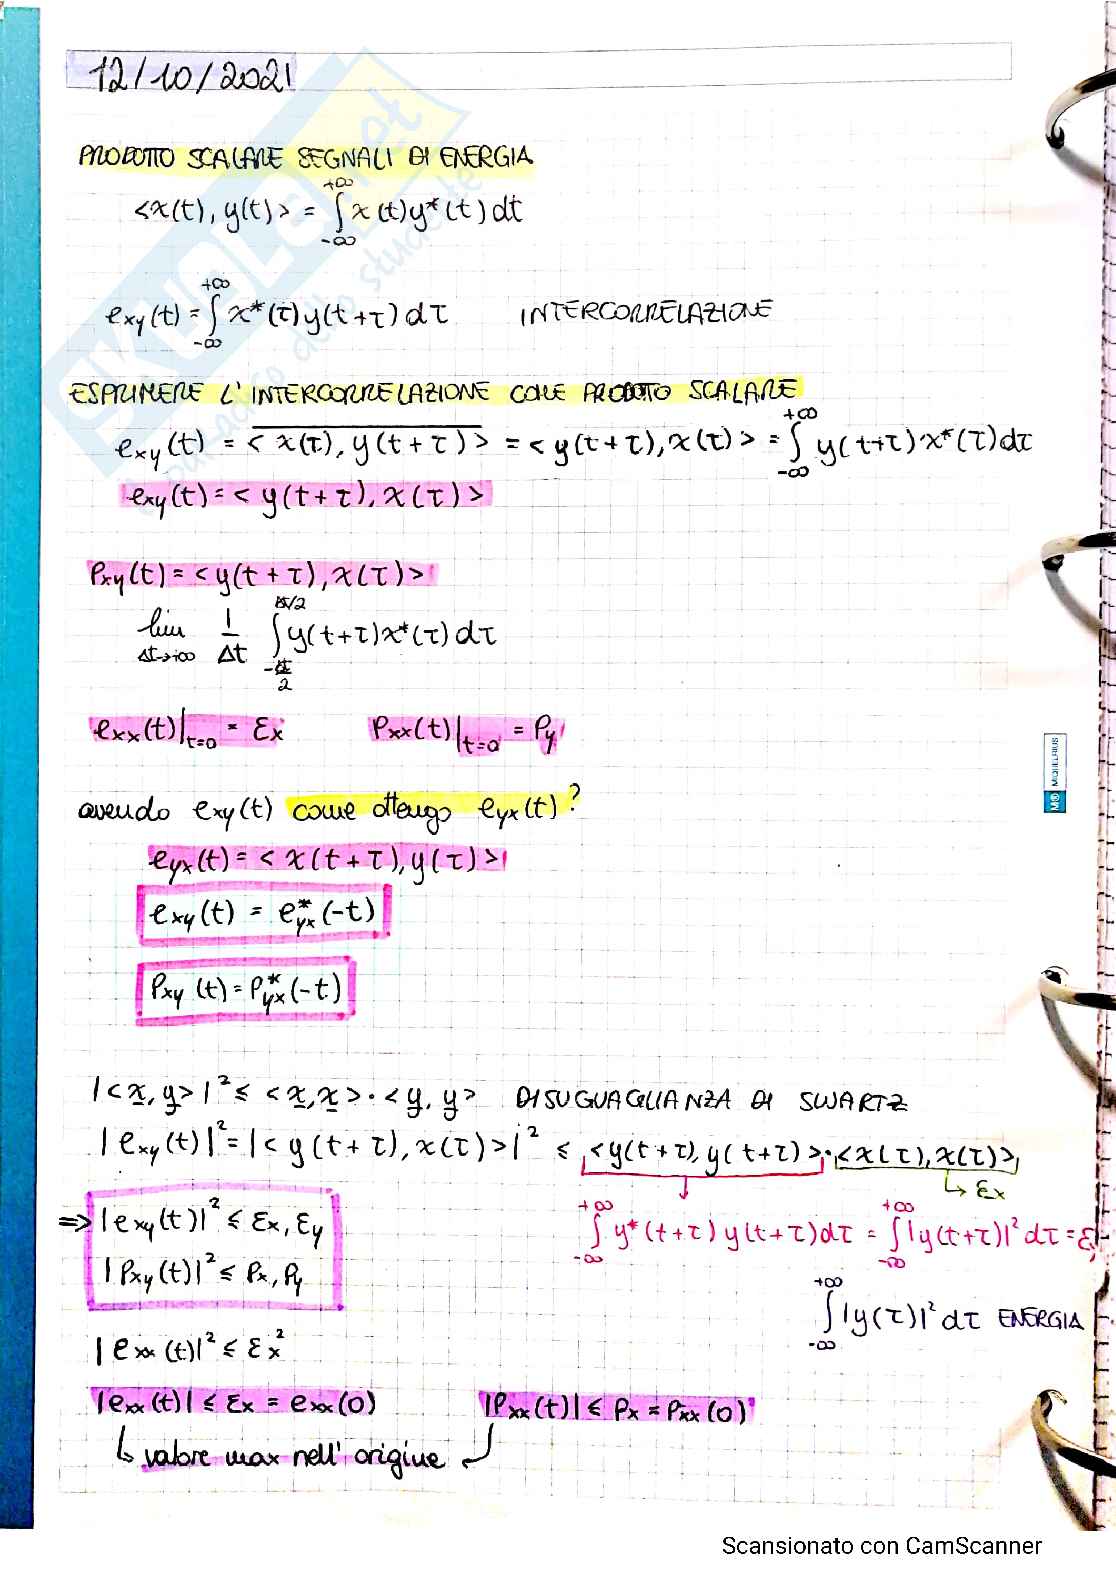 12/10/2021
PRODOTTO SCALARE SEGNALI DI ENERGIA
<x(t), y(t)> = ∫_{-∞}^{+∞} x(t) y*(t) dt
e_xy(t) = ∫_{-∞}^{+∞} x*(τ) y(t+τ) dτ INTERCORRELAZIONE
ESPRIMERE L'INTERCORRELAZIONE COME PRODOTO SCALARE
e_xy(t) = \overline{< x(τ), y(t+τ) >} = < y(t+τ), x(τ) > = ∫_{-∞}^{+∞} y(t+τ)·x*(τ) dτ
e_xy(t) = < y(t+τ), x(τ) >
P_xy(t) = < y(t+τ), x(τ) >
lim_{Δt→+∞} 1/Δt ∫_{-Δt/2}^{Δt/2} y(t+τ) x*(τ) dτ
e_xx(t)|_{t=0} = Ɛx P_xx(t)|_{t=0} = P_y
avendo e_xy(t) come ottengo e_yx(t)?
e_yx(t) = < x(t+τ), y(τ) >
e_xy(t) = e*_yx(-t)
P_xy(t) = P*_yx(-t)
|<x, y>|² ≤ <x, x> · <y, y> DISUGUAGLIANZA DI SWARTZ
|e_xy(t)|² = |< y(t+τ), x(τ) >|² ≤ < y(t+τ), y(t+τ) > · < x(τ), x(τ) >
↳ Ɛx
=> |e_xy(t)|² ≤ Ɛx, Ɛy
∫_{-∞}^{+∞} y*(t+τ) y(t+τ) dτ = ∫_{-∞}^{+∞} |y(t+τ)|² dτ = Ɛ
|P_xy(t)|² ≤ Px, Py
∫_{-∞}^{+∞} |y(τ)|² dτ ENERGIA
|e_xx(t)|² ≤ Ɛx²
|e_xx(t)| ≤ Ɛx = e_xx(0) |P_xx(t)| ≤ Px = P_xx(0)
↳ valore max nell'origine
M® MIQUELRIUS
Scansionato con CamScanner